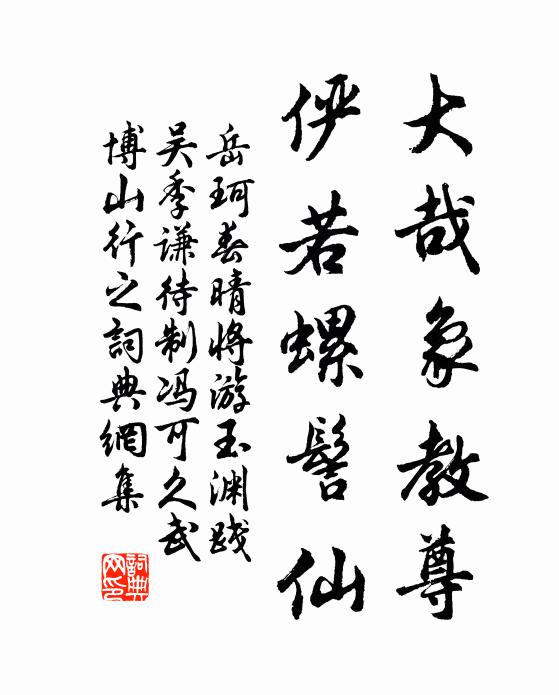 大哉象教尊
俨若螺髻仙
岳珂春晴将游玉渊践
吴季谦待制冯可久武
博山行之詞典網集
詞典网印